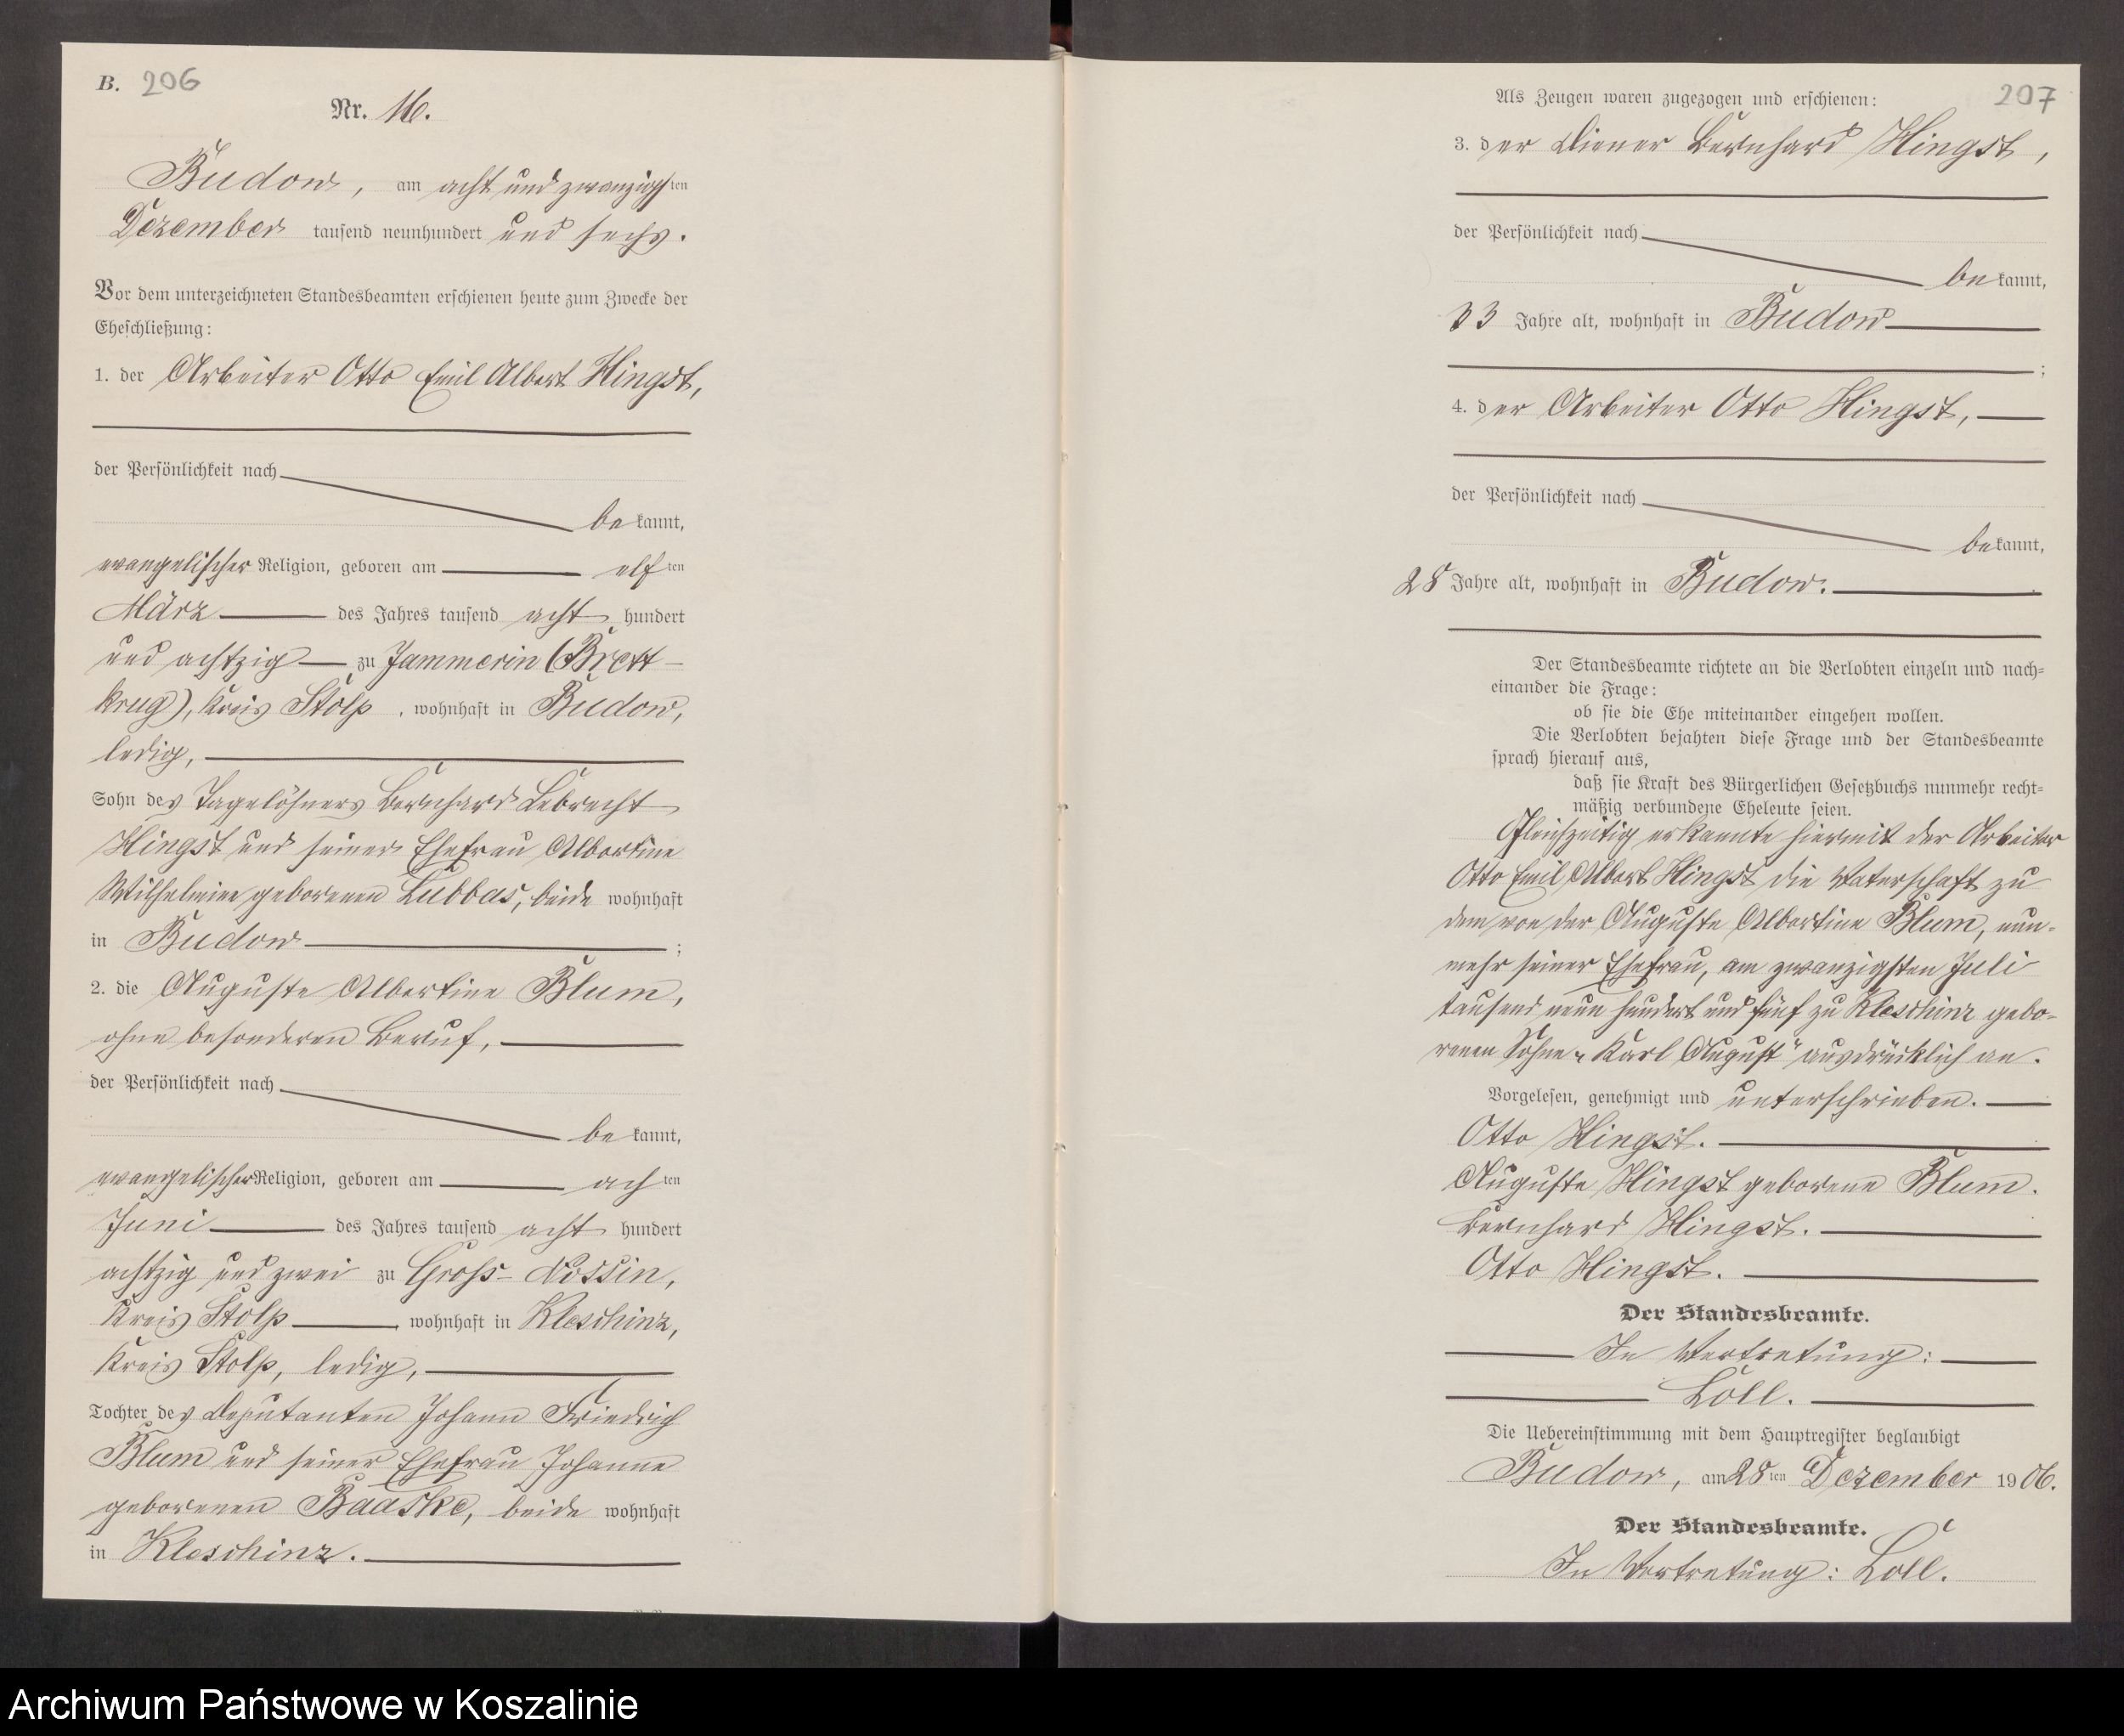 B. 206
Nr. 16.
Budow, am acht und zwanzigsten
Dezember tausend neunhundert und sechs.
Vor dem unterzeichneten Standesbeamten erschienen heute zum Zwecke der
Eheschließung:
1. der Arbeiter Otto Emil Albert Hingst,
der Persönlichkeit nach
be kannt,
evangelischer Religion, geboren am elf ten
März des Jahres tausend acht hundert
und achtzig zu Jammerin (Brett-
krug), Kreis Stolp, wohnhaft in Budow,
ledig,
Sohn des Tagelöhners Bernhard Lebrecht
Hingst und seiner Ehefrau Albertine
Wilhelmine geborenen Lubbas, beide wohnhaft
in Budow ;
2. die Auguste Albertine Blum,
ohne besonderen Beruf,
der Persönlichkeit nach
be kannt,
evangelischer Religion, geboren am ach ten
Juni des Jahres tausend acht hundert
achtzig und zwei zu Gross-Nossin,
Kreis Stolp, wohnhaft in Kleschinz,
Kreis Stolp, ledig,
Tochter des Deputanten Johann Friedrich
Blum und seiner Ehefrau Johanne
geborenen Baaske, beide wohnhaft
in Kleschinz.
207
Als Zeugen waren zugezogen und erschienen:
3. der Diener Bernhard Hingst,
der Persönlichkeit nach
be kannt,
33 Jahre alt, wohnhaft in Budow
;
4. der Arbeiter Otto Hingst,
der Persönlichkeit nach
be kannt,
28 Jahre alt, wohnhaft in Budow.
Der Standesbeamte richtete an die Verlobten einzeln und nach=
einander die Frage:
ob sie die Ehe miteinander eingehen wollen.
Die Verlobten bejahten diese Frage und der Standesbeamte
sprach hierauf aus,
daß sie Kraft des Bürgerlichen Gesetzbuchs nunmehr recht=
mäßig verbundene Eheleute seien.
Gleichzeitig erkannte hiermit der Arbeiter
Otto Emil Albert Hingst die Vaterschaft zu
dem von der Auguste Albertine Blum, nun-
mehr seiner Ehefrau, am zwanzigsten Juli
tausend neun hundert und fünf zu Kleschinz gebo-
renen Sohne "Karl August" ausdrücklich an.
Vorgelesen, genehmigt und unterschrieben.
Otto Hingst.
Auguste Hingst geborene Blum.
Bernhard Hingst.
Otto Hingst.
Der Standesbeamte.
In Vertretung:
Loll.
Die Uebereinstimmung mit dem Hauptregister beglaubigt
Budow, am 28 ten Dezember 1906.
Der Standesbeamte.
In Vertretung: Loll.
Archiwum Państwowe w Koszalinie